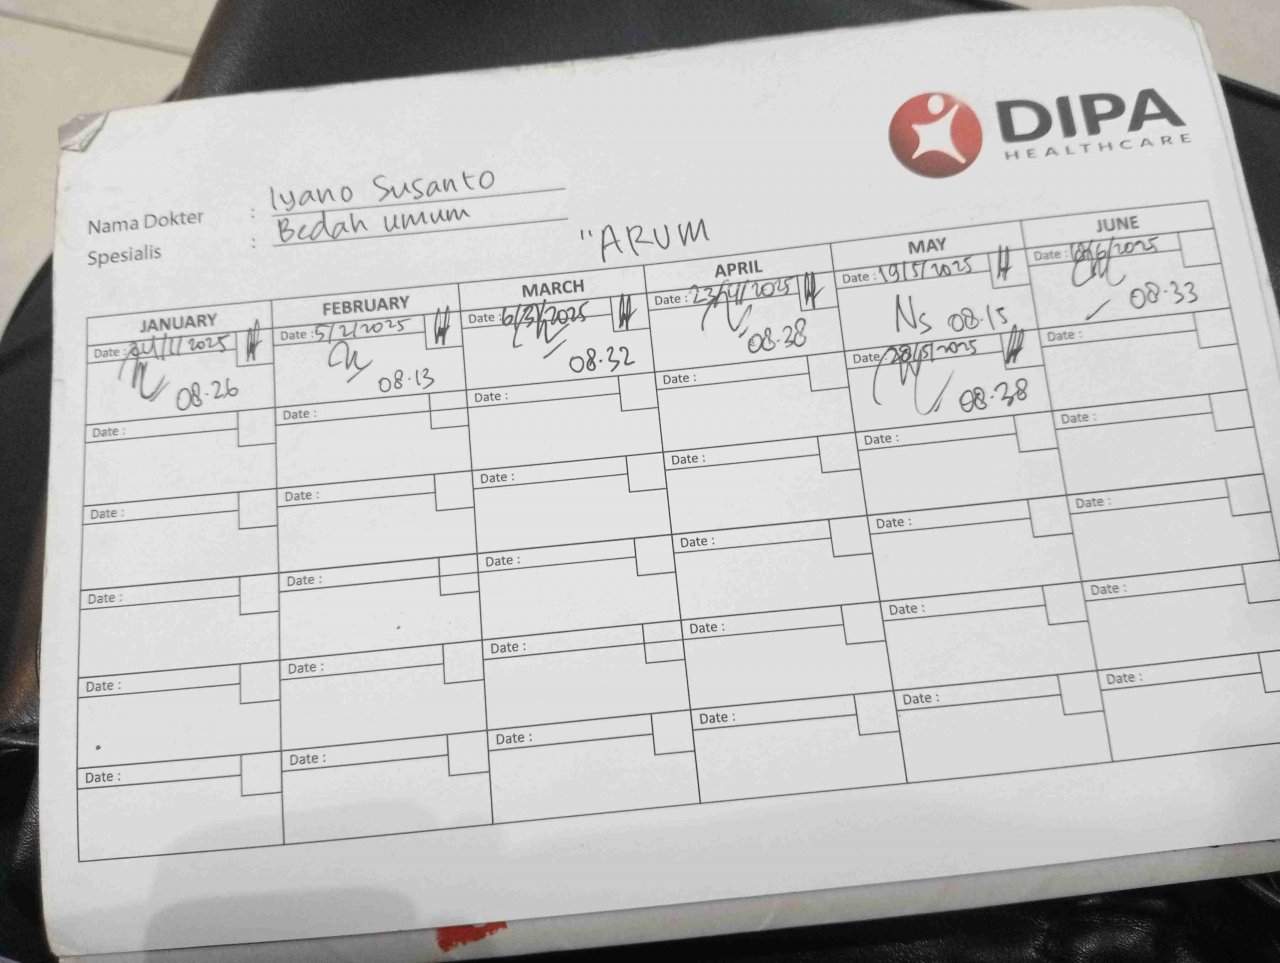 DIPA
HEALTHCARE
Nama Dokter : Iyano Susanto
Spesialis : Bedah umum
"ARUM
JANUARY FEBRUARY MARCH APRIL MAY JUNE
Date : 24/1/2025 Date : 5/2/2025 Date : 6/3/2025 Date : 23/4/2025 Date : 19/5/2025 Date : 18/6/2025
08.26 08.13 08.32 08.38 Ns 08.15 08.33
Date : Date : Date : Date : Date : 28/5/2025 Date :
08.38
Date : Date : Date : Date : Date : Date :
Date : Date : Date : Date : Date : Date :
Date : Date : Date : Date : Date : Date :
Date : Date : Date : Date : Date : Date :